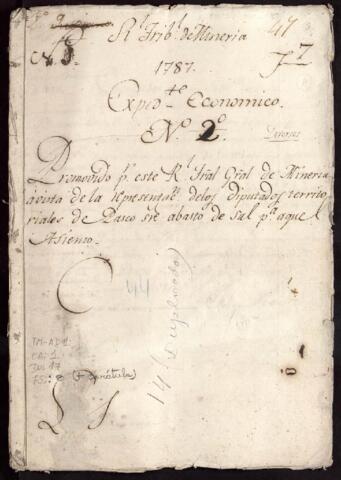 Rl Tribl. de Mineria
47
1787.
Expedte. Economico.
No. 2o.
Promovido pr. este Rl. Tral Gral de Mineria
avista de la representac. delos Diputados territo
riales de Pasco sre abasto de Sal pa. aquel
Asiento.
44
14 (duplicado)
TM-AD1
CA: 1
Do: 17
FS: 8 (+ carátula)